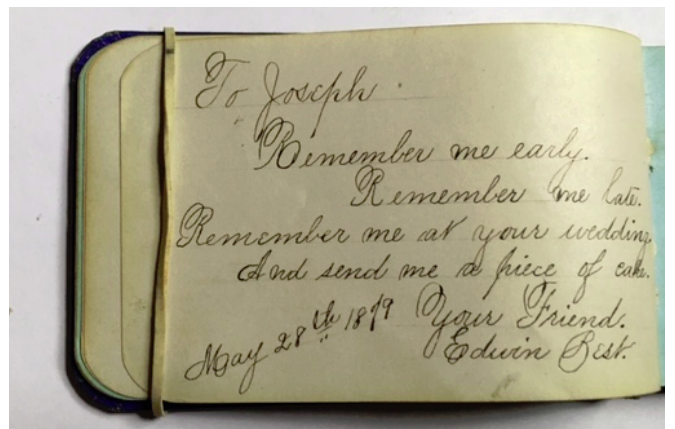 To Joseph.
Remember me early.
Remember me late.
Remember me at your wedding
And send me a piece of cake.
Your Friend.
May 28th 1879
Edwin Best.